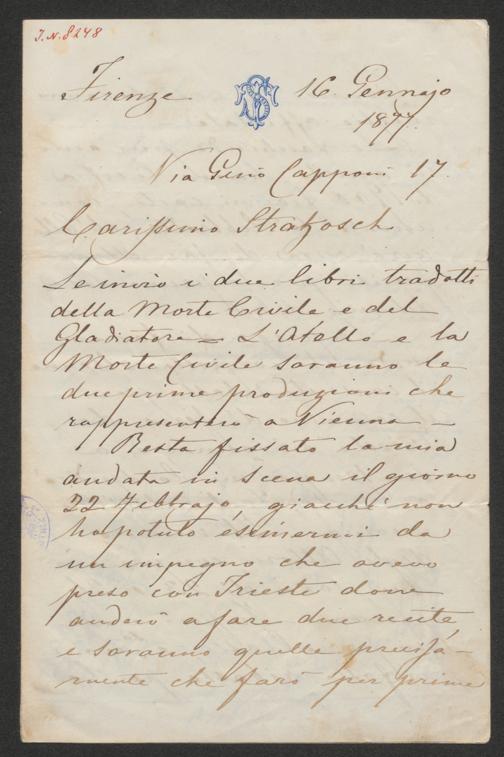 J.N. 8248
Firenze 16 Gennajo
1877.
Via Gino Capponi 17.
Carissimo Strakosch
Le invio i due libri tradotti
della Morte Civile e del
Gladiatore = L'Otello e la
Morte Civile saranno le
due prime produzioni che
rappresenterò a Vienna –
Resta fissato la mia
andata in scena il giorno
22 Febbrajo, giacchè non
ho potuto esimermi da
un impegno che avevo
preso con Trieste dove
anderò a fare due recite
e saranno quelle precisa-
mente che farò per prime